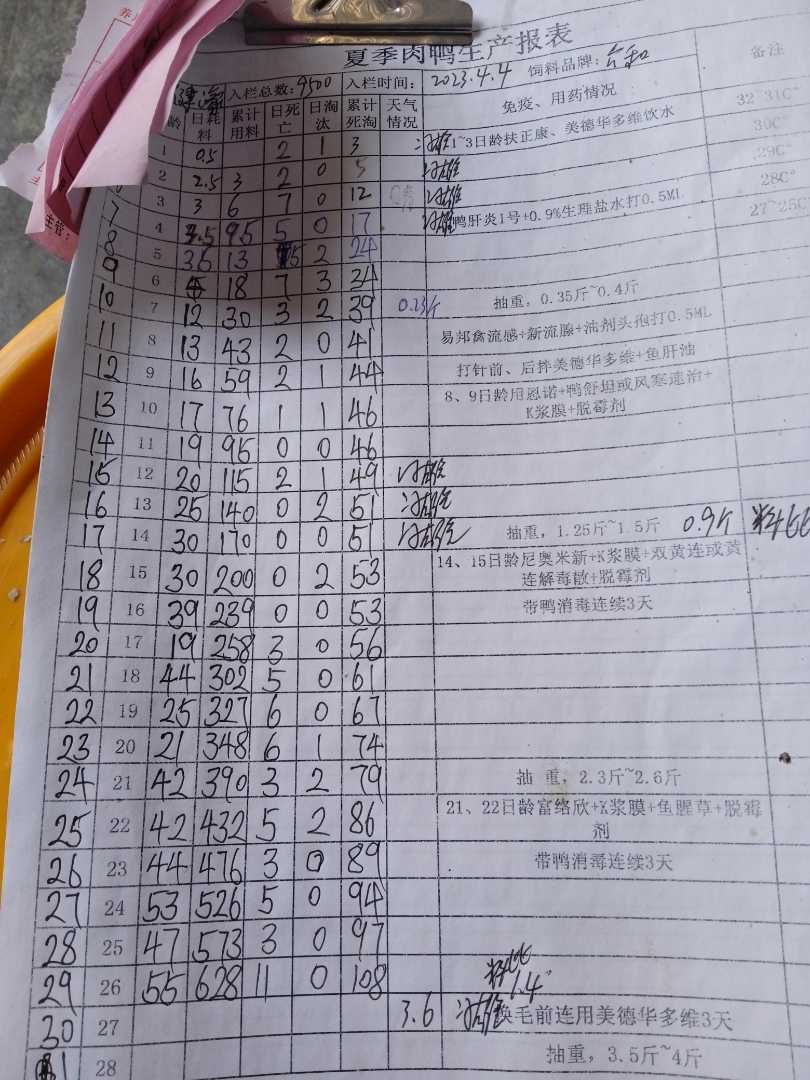 夏季肉鸭生产报表
入栏总数: 9500 入栏时间: 2023.4.4 饲料品牌: 备注
龄 日耗料 累计用料 日死亡 日淘汰 累计死淘 天气情况 免疫、用药情况
1 0.5 2 1 3 1~3日龄扶正康、美德华多维饮水 32~31C°
2 2.5 3 2 0 5 30C°
3 3 6 7 0 12 29C°
7 4 3.5 9.5 5 0 17 鸭肝炎1号+0.9%生理盐水打0.5ML 28C°
8 5 3.5 13 5 2 24 27~25C°
9 6 18 7 3 34 抽重, 0.35斤~0.4斤
10 7 12 30 3 2 39 0.23斤
11 8 13 43 2 0 41 易邦禽流感+新流腺+油剂头孢打0.5ML
12 9 16 59 2 1 44 打针前、后拌美德华多维+鱼肝油
13 10 17 76 1 1 46 8、9日龄用恩诺+鸭舒坦或风寒速治+
K浆膜+脱霉剂
14 11 19 95 0 0 46
15 12 20 115 2 1 49
16 13 25 140 0 2 51
17 14 30 170 0 0 51 抽重, 1.25斤~1.5斤 0.9斤
18 15 30 200 0 2 53 14、15日龄尼奥米新+K浆膜+双黄连或黄
连解毒散+脱霉剂
19 16 39 239 0 0 53 带鸭消毒连续3天
20 17 19 258 3 0 56
21 18 44 302 5 0 61
22 19 25 327 6 0 67
23 20 21 348 6 1 74
24 21 42 390 3 2 79 抽 重, 2.3斤~2.6斤
25 22 42 432 5 2 86 21、22日龄富络欣+K浆膜+鱼腥草+脱霉
剂
26 23 44 476 3 0 89 带鸭消毒连续3天
27 24 53 526 5 0 94
28 25 47 573 3 0 97
29 26 55 628 11 0 108
30 27 3.6 换毛前连用美德华多维3天
28 抽重, 3.5斤~4斤